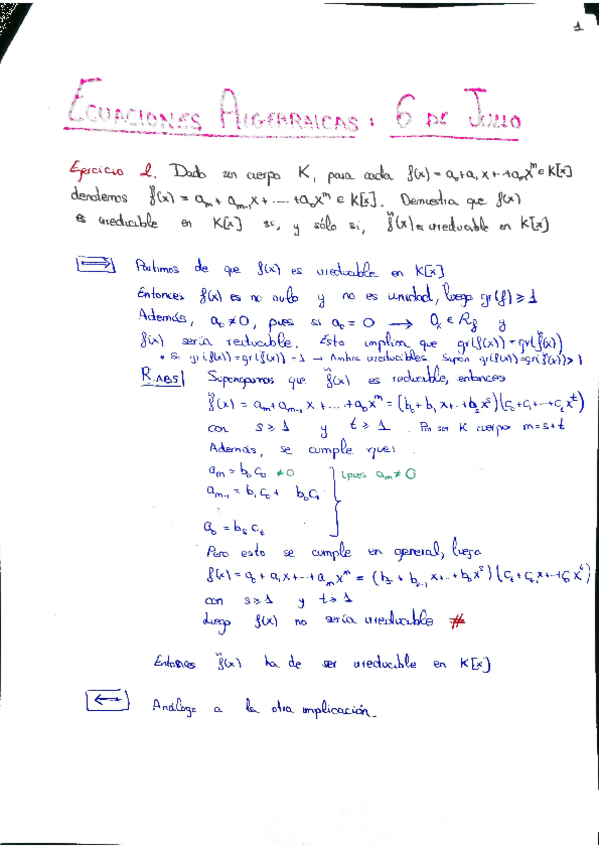 1
ECUACIONES ALGEBRAICAS: 6 DE JULIO
Ejercicio 2. Dado un cuerpo K, para cada f(x) = a₀+a₁x+...+aₘxᵐ ∈ K[x]
denotemos f̃(x) = aₘ + aₘ₋₁x + .... + a₀xᵐ ∈ K[x]. Demuestra que f(x)
es irreducible en K[x] si, y sólo si, f̃(x) es irreducible en K[x]
⟹ Partimos de que f(x) es irreducible en K[x]
Entonces f(x) es no nulo y no es unidad, luego gr(f) ≥ 1
Además, a₀ ≠ 0, pues si a₀ = 0 → 0ₖ ∈ R_f y
f(x) sería reducible. Esto implica que gr(f(x)) = gr(f̃(x))
• Si gr(f(x)) = gr(f̃(x)) = 1 → Ambos irreducibles. Supon gr(f(x)) = gr(f̃(x)) > 1
R.ABS| Supongamos que f̃(x) es reducible, entonces
f̃(x) = aₘ + aₘ₋₁ x + ... + a₀xᵐ = (b₀ + b₁x + .. + bₛxˢ)(c₀ + c₁ + ... + cₜxᵗ)
con s ≥ 1 y t ≥ 1. Por ser K cuerpo m = s+t
Además, se cumple que:
aₘ = b₀c₀ ≠ 0 pues aₘ ≠ 0
aₘ₋₁ = b₁c₀ + b₀c₁
a₀ = bₛcₜ
Pero esto se cumple en general, luego
f(x) = a₀ + a₁x + ... + aₘxᵐ = (bₛ + bₛ₋₁x + .. + b₀xˢ)(cₜ + cₜ₋₁x + ... + c₀xᵗ)
con s ≥ 1 y t ≥ 1
Luego f(x) no sería irreducible #
Entonces f̃(x) ha de ser irreducible en K[x]
⟸ Análogo a la otra implicación.